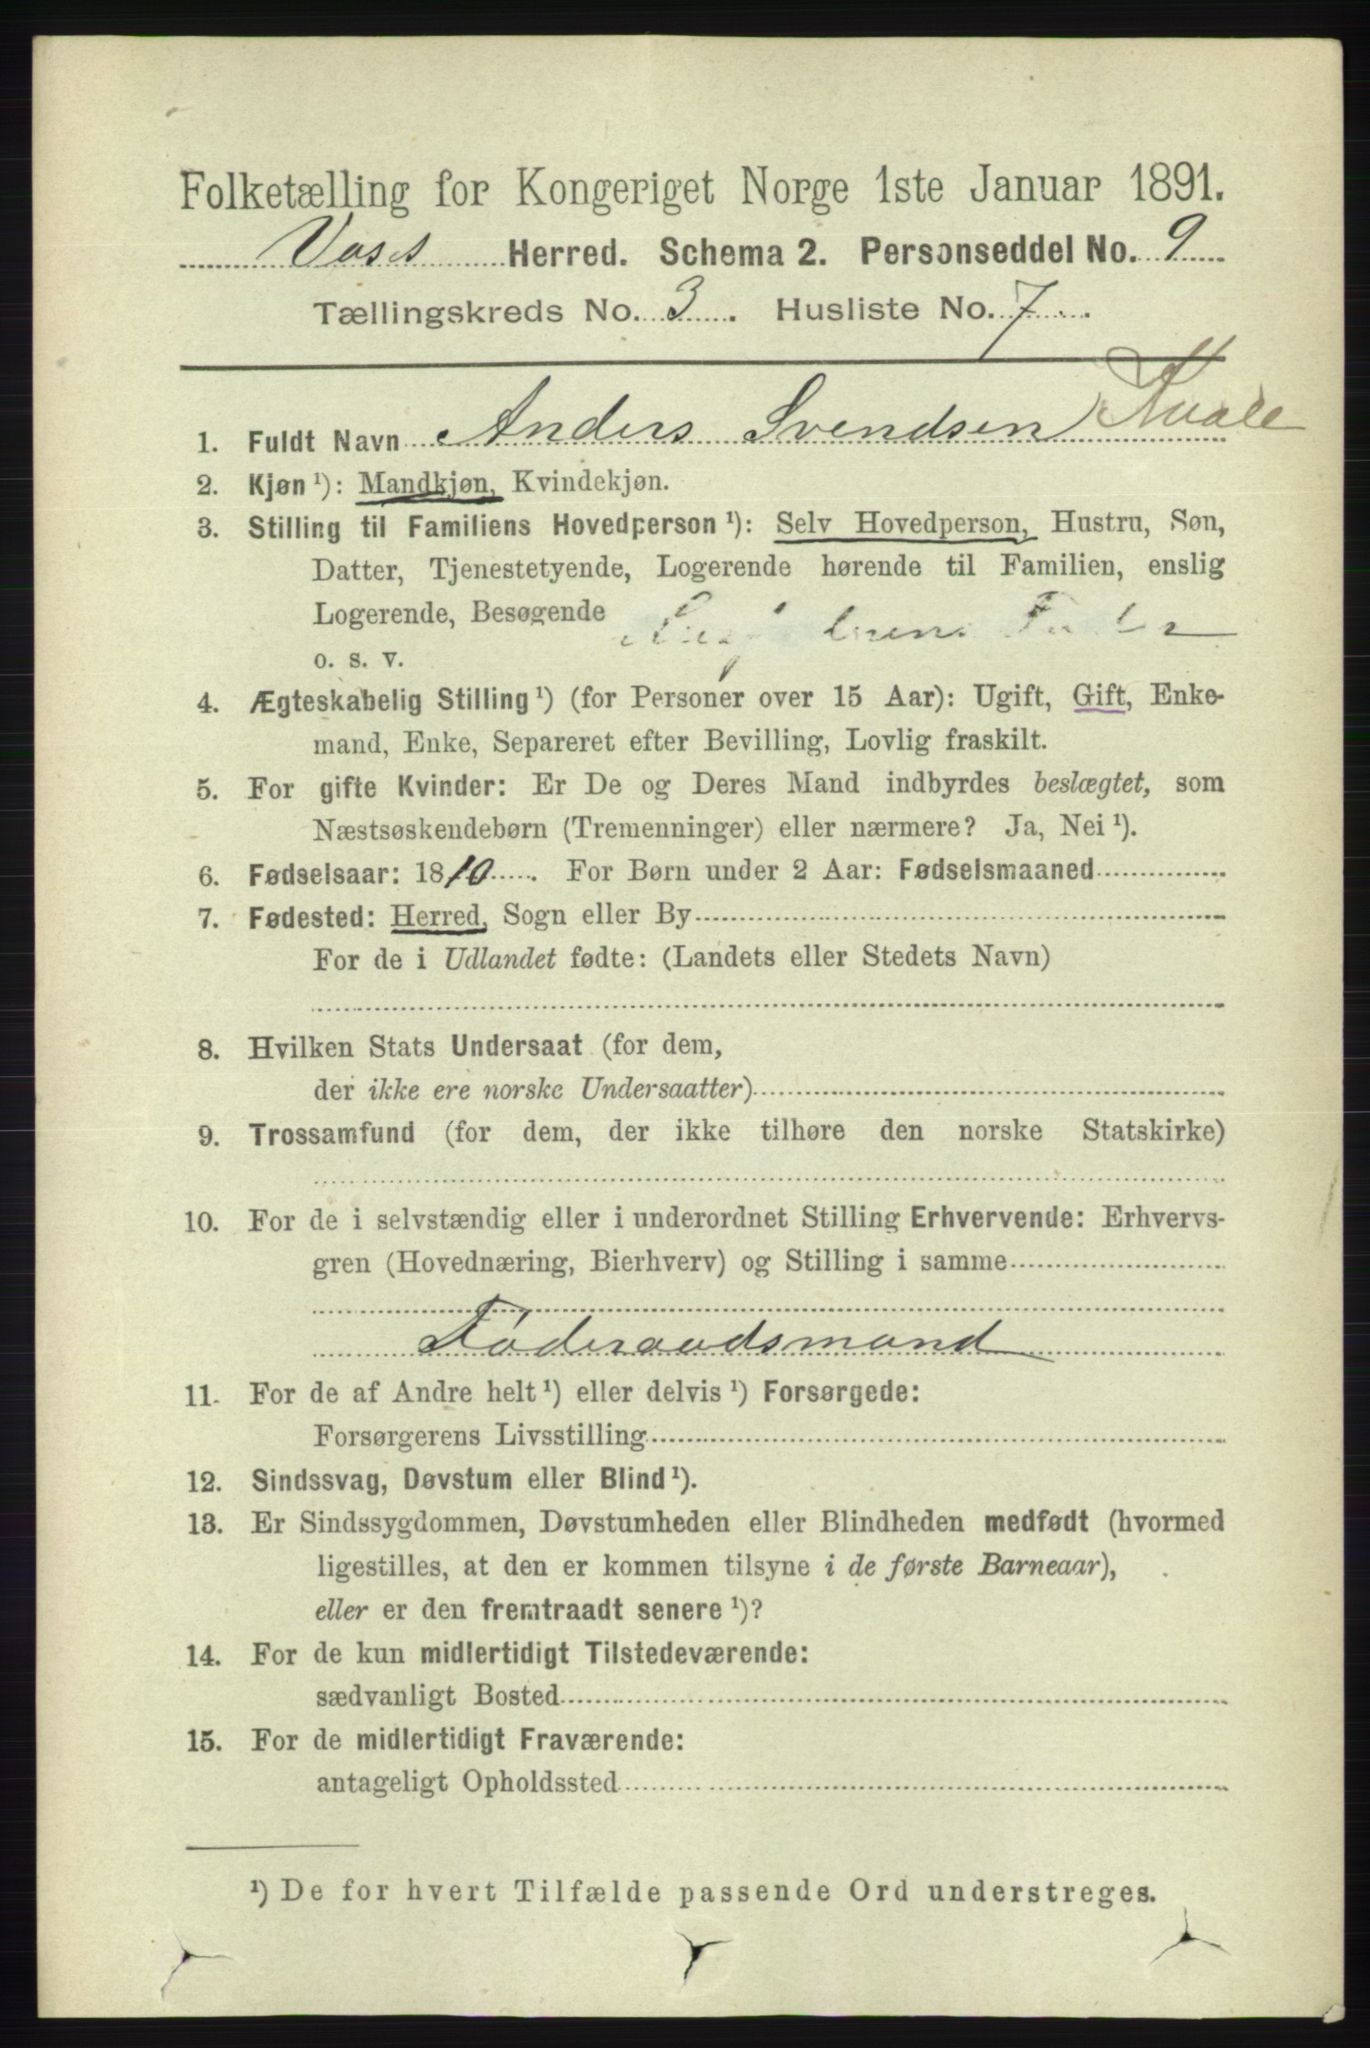 Folketælling for Kongeriget Norge 1ste Januar 1891.
Voss Herred. Schema 2. Personseddel No. 9
Tællingskreds No. 3. Husliste No. 7.
1. Fuldt Navn Anders Svendsen Kvale
2. Kjøn ¹): Mandkjøn, Kvindekjøn.
3. Stilling til Familiens Hovedperson ¹): Selv Hovedperson, Hustru, Søn,
Datter, Tjenestetyende, Logerende hørende til Familien, enslig
Logerende, Besøgende
o. s. v.
4. Ægteskabelig Stilling ¹) (for Personer over 15 Aar): Ugift, Gift, Enke-
mand, Enke, Separeret efter Bevilling, Lovlig fraskilt.
5. For gifte Kvinder: Er De og Deres Mand indbyrdes beslægtet, som
Næstsøskendebørn (Tremenninger) eller nærmere? Ja, Nei ¹).
6. Fødselsaar: 1810. For Børn under 2 Aar: Fødselsmaaned
7. Fødested: Herred, Sogn eller By
For de i Udlandet fødte: (Landets eller Stedets Navn)
8. Hvilken Stats Undersaat (for dem,
der ikke ere norske Undersaatter)
9. Trossamfund (for dem, der ikke tilhøre den norske Statskirke)
10. For de i selvstændig eller i underordnet Stilling Erhvervende: Erhvervs-
gren (Hovednæring, Bierhverv) og Stilling i samme
Føderaadsmand
11. For de af Andre helt ¹) eller delvis ¹) Forsørgede:
Forsørgerens Livsstilling
12. Sindssvag, Døvstum eller Blind ¹).
13. Er Sindssygdommen, Døvstumheden eller Blindheden medfødt (hvormed
ligestilles, at den er kommen tilsyne i de første Barneaar),
eller er den fremtraadt senere ¹)?
14. For de kun midlertidigt Tilstedeværende:
sædvanligt Bosted
15. For de midlertidigt Fraværende:
antageligt Opholdssted
¹) De for hvert Tilfælde passende Ord understreges.